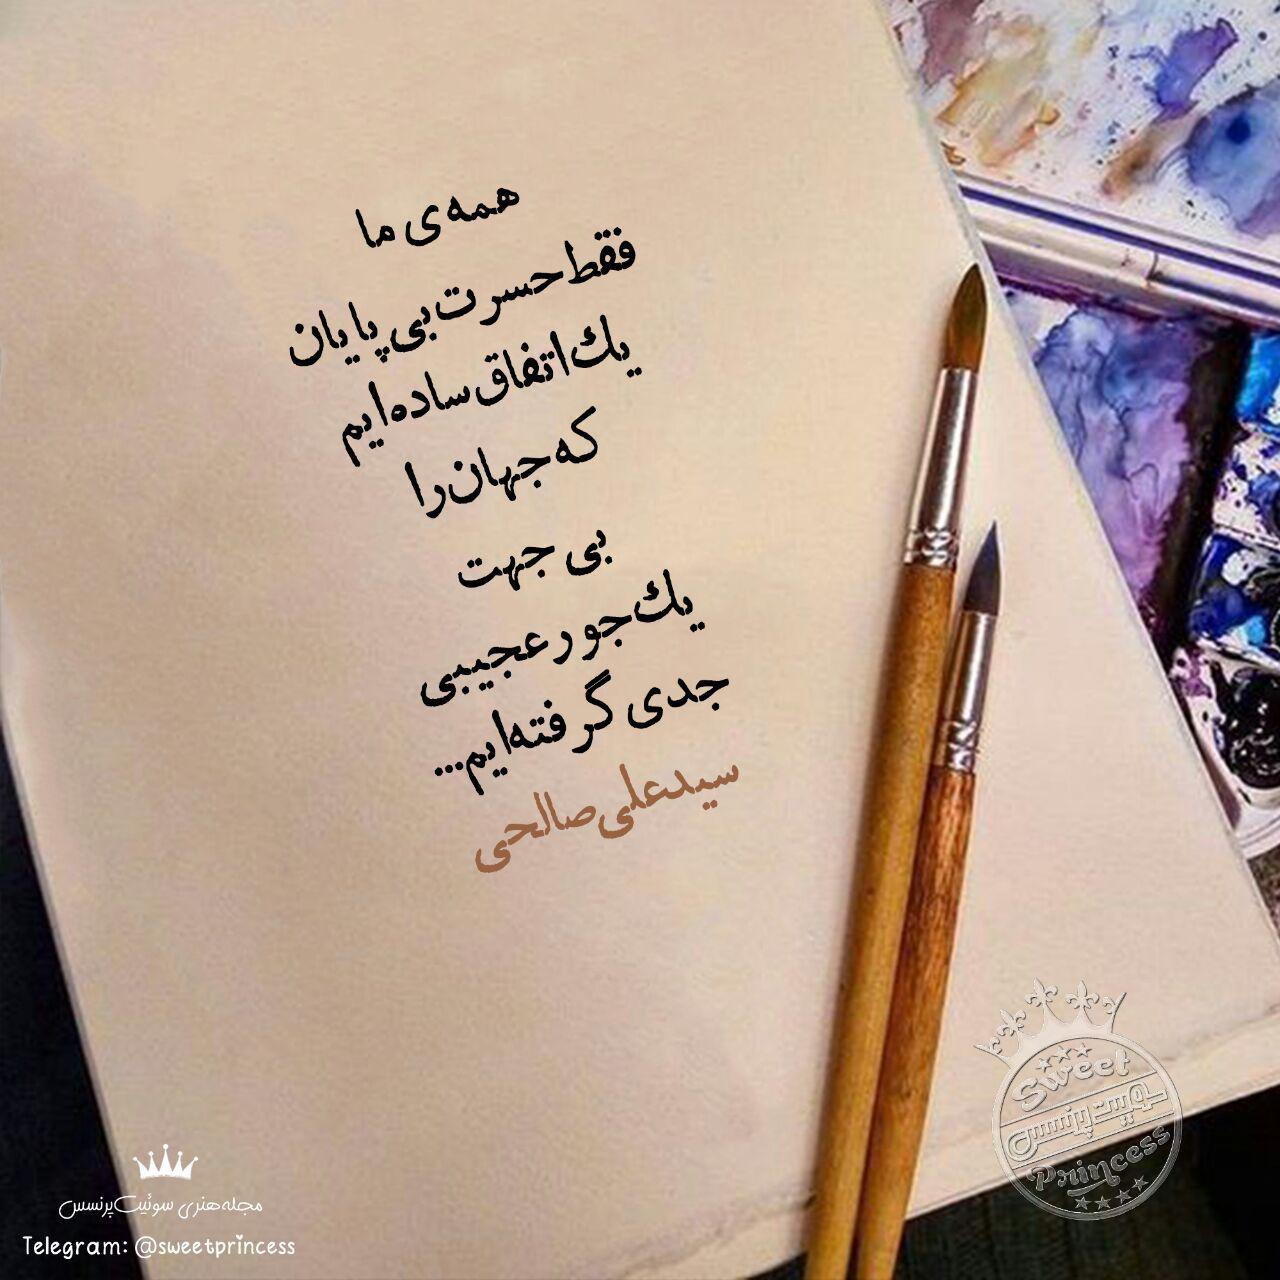 همه‌ی ما
فقط حسرت بی پایان
یك اتفاق ساده‌ایم
که جهان را
بی جهت
یك جور عجیبی
جدی گرفته‌ایم...
سیدعلی صالحی
Sweet
سوئیت پرنسس
Princess
مجله هنری سوئیت پرنسس
Telegram: @sweetprincess